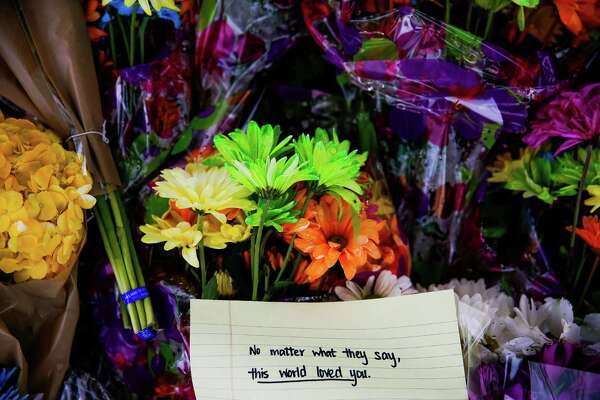 No matter what they say,
this world loved you.